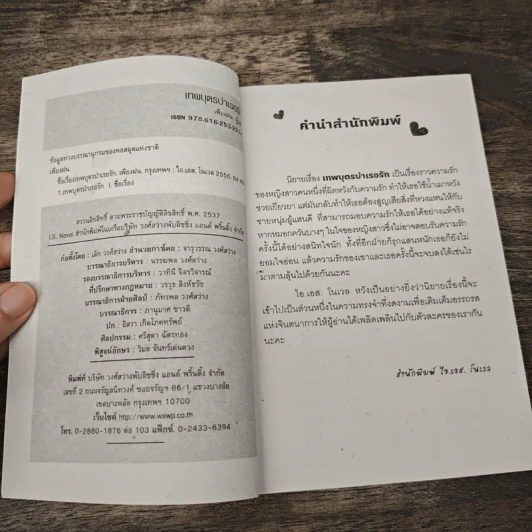 เทพบุตรบำเรอรัก
เพียงฝน
ISBN 978-616-253-22
ข้อมูลทางบรรณานุกรมของหอสมุดแห่งชาติ
เพียงฝน.
ชื่อเรื่องเทพบุตรบำเรอรัก. เพียงฝน. กรุงเทพฯ : ไอ.เอส. โนเวล 2556.
1.เทพบุตรบำเรอรัก I. ชื่อเรื่อง
สงวนลิขสิทธิ์ ตามพระราชบัญญัติลิขสิทธิ์ พ.ศ. 2537
I.S. Novel สำนักพิมพ์ในเครือบริษัท วงศ์สว่างพับลิชชิ่ง แอนด์ พริ้นติ้ง จำกัด
ก่อตั้งโดย : เล็ก วงศ์สว่าง อำนวยการโดย : จารุวรรณ วงศ์สว่าง
บรรณาธิการบริหาร : นวรมพล วงศ์สว่าง
รองบรรณาธิการบริหาร : วาทินี จิตรวิจารณ์
ที่ปรึกษาทางกฎหมาย : วรวุธ สิงห์ขวัช
บรรณาธิการฝ่ายศิลป์ : ภัทรพล วงศ์สว่าง
บรรณาธิการ : ภานุมาศ ขาวดี
ปก : อิสรา เกิดโภคทรัพย์
ศิลปกรรม : ศรีสุดา ฉัตรทอง
พิสูจน์อักษร : วิมล จันทร์เด่นดวง
พิมพ์ที่ บริษัท วงศ์สว่างพับลิชชิ่ง แอนด์ พริ้นติ้ง จำกัด
เลขที่ 2 ถนนจรัญสนิทวงศ์ ซอยจรัญฯ 86/1 แขวงบางอ้อ
เขตบางพลัด กรุงเทพฯ 10700
เว็บไซต์ http://www.wswp.co.th
โทร. 0-2880-1876 ต่อ 103 แฟ็กซ์. 0-2433-6394
คำนำสำนักพิมพ์
นิยายเรื่อง เทพบุตรบำเรอรัก เป็นเรื่องราวความรัก
ของหญิงสาวคนหนึ่งที่ผิดหวังกับความรัก ทำให้เธอใช้น้ำเมาหวัง
ช่วยเยียวยา แต่มันกลับทำให้เธอต้องสูญเสียสิ่งที่หวงแหนให้กับ
ชายหนุ่มผู้แสนดี ที่สามารถมอบความรักให้เธอได้อย่างแท้จริง
หากหมอกควันบางๆ ในใจของหญิงสาวซึ่งไม่อาจตอบรับความรัก
ครั้งนี้ได้อย่างสนิทใจนัก ทั้งที่อีกฝ่ายก็รุกแสนหนักเธอก็ยังไม่
ยอมใจอ่อน แล้วความรักของเขาและเธอครั้งนี้จะจบลงได้เช่นไร
มาตามลุ้นไปด้วยกันนะคะ
ไอ.เอส. โนเวล หวังเป็นอย่างยิ่งว่านิยายเรื่องนี้จะ
เข้าไปเป็นส่วนหนึ่งในความทรงจำที่งดงามเพื่อเติมเต็มอรรถรส
แห่งจินตนาการให้ผู้อ่านได้เพลิดเพลินไปกับตัวละครของเรากัน
นะคะ
สำนักพิมพ์ ไอ.เอส. โนเวล